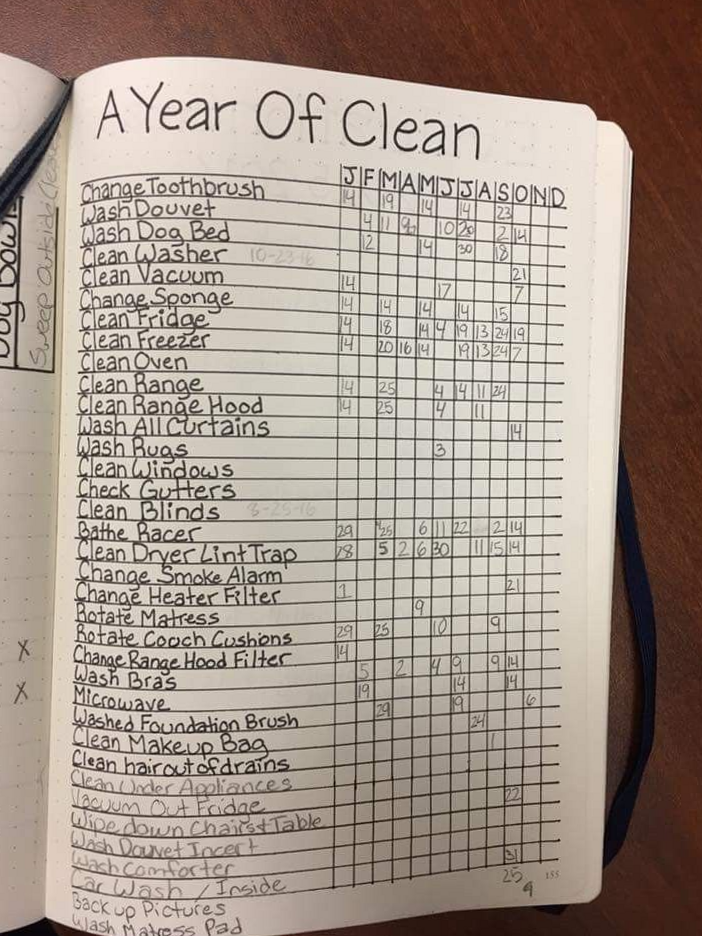 A Year Of Clean
J F M A M J J A S O N D
Change Toothbrush 14 19 14 14 23
Wash Douvet 4 11 10 20 2 14
Wash Dog Bed 12 14 30 18
Clean Washer 10-23-16 21
Clean Vacuum 14 17 7
Change Sponge 14 14 14 14 15
Clean Fridge 14 18 14 4 19 13 24 19
Clean Freezer 14 20 16 14 19 13 24 7
Clean Oven
Clean Range 14 25 4 14 11 24
Clean Range Hood 14 25 4 11
Wash All Curtains 14
Wash Rugs 3
Clean Windows
Check Gutters
Clean Blinds 8-25-16
Bathe Racer 29 25 6 11 22 2 14
Clean Dryer Lint Trap 28 5 2 6 30 11 15 14
Change Smoke Alarm
Change Heater Filter 1 21
Rotate Matress 9
Rotate Cooch Cushions 29 25 10 9
Change Range Hood Filter 14
Wash Bras 5 2 4 9 9 14
Microwave 19 14 14
Washed Foundation Brush 29 19 6
Clean Makeup Bag 24
Clean hair out of drains 1
Clean Under Appliances
Vacuum Out Fridge 22
Wipe down Chairs & Table
Wash Douvet Incert
Wash Comforter
Car Wash / Inside 31
Back up Pictures 25
Wash Matress Pad 9
155
Dog Bowls
Sweep Outside
X
X